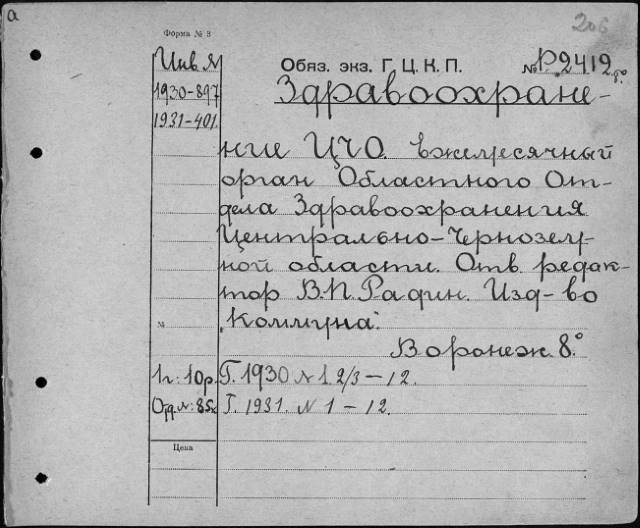 а
206
Форма № 3
Инв. №
1930-897
1931-401.
Обяз. экз. Г. Ц. К. П.
№ Р2412 8°.
Здравоохране-
ние ЦЧО. Ежемесячный
орган Областного От-
дела Здравоохранения
Центрально-Чернозем-
ной области. Отв. редак-
тор В.П. Радин. Изд-во
„Коммуна“.
№
Воронеж. 8°.
1 г: 10р. Г. 1930 № 1. 2/3 — 12.
Отд №: 85к Г. 1931. № 1 — 12.
Цена